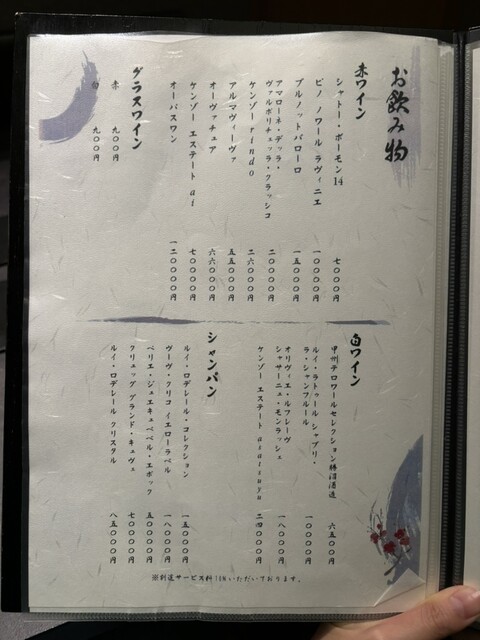 お飲み物
赤ワイン
シャトー・ボーモン14 七〇〇〇円
ピノ ノワール ラヴィニエ 一〇〇〇〇円
ブルノットバローロ 一五〇〇〇円
アマローネ・デッラ・
ヴァルポリチェッラ・クラッシコ 二〇〇〇〇円
ケンゾー rindo 二六〇〇〇円
アルマヴィーヴァ 五五〇〇〇円
オーヴァチュア 六六〇〇〇円
ケンゾー エステート ai 七〇〇〇〇円
オーパスワン 一二〇〇〇〇円
グラスワイン
赤 九〇〇円
白 九〇〇円
白ワイン
甲州テロワールセレクション勝沼酒造 六五〇〇円
ルイ・ラトゥール シャブリ・
ラ・シャンフルール 一〇〇〇〇円
オリヴィエ・ルフレーヴ
シャサーニュ・モンラッシェ 一八〇〇〇円
ケンゾー エステート asatsuyu 二四〇〇〇円
シャンパン
ルイ・ロデレール・コレクション 一五〇〇〇円
ヴーヴ・クリコ イエローラベル 一八〇〇〇円
ペリエ・ジュエ キュベ ベル・エポック 五〇〇〇〇円
クリュッグ グランド・キュヴェ 七〇〇〇〇円
ルイ・ロデレール クリスタル 八五〇〇〇円
※別途サービス料10%いただいております。